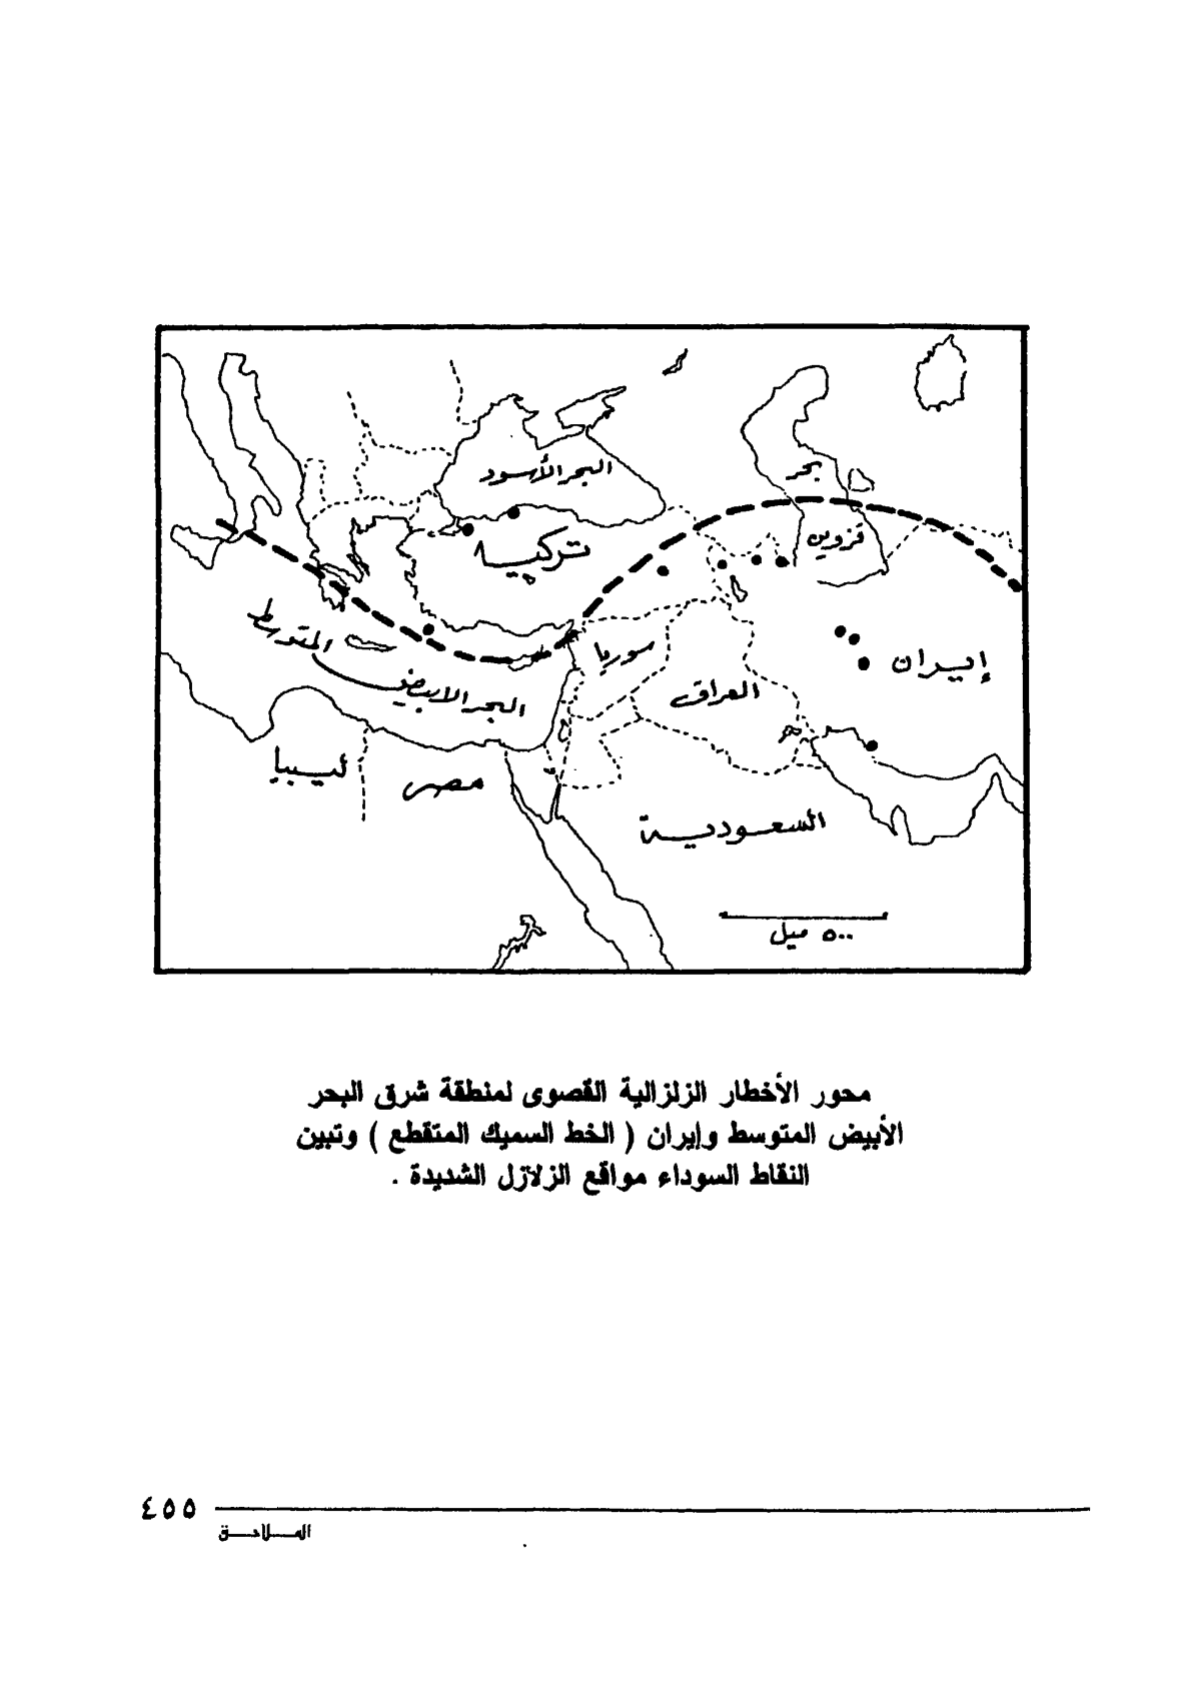 البحر الأسود
بحر
قزوين
تركيا
المتوسط
البحر الابيض
سوريا
العراق
إيران
ليبيا
مصر
السعودية
٥٠٠ ميل
محور الأخطار الزلزالية القصوى لمنطقة شرق البحر
الأبيض المتوسط وإيران ( الخط السميك المتقطع ) وتبين
النقاط السوداء مواقع الزلازل الشديدة .
٤٥٥
الملاحق